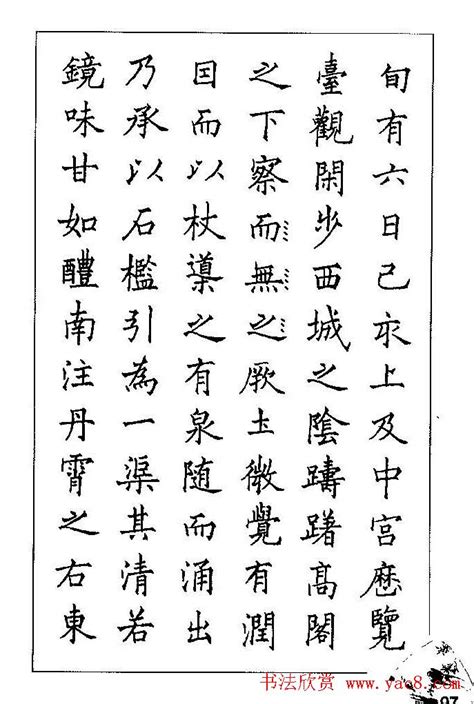 旬有六日己亥上及中宮厯覽
臺觀閑步西城之陰躊躇髙閣
之下察而無之厥土微覺有潤
因而以杖導之有泉随而涌出
乃承以石檻引為一渠其清若
鏡味甘如醴南注丹霄之右東
97
书法欣赏 www.yac8.com